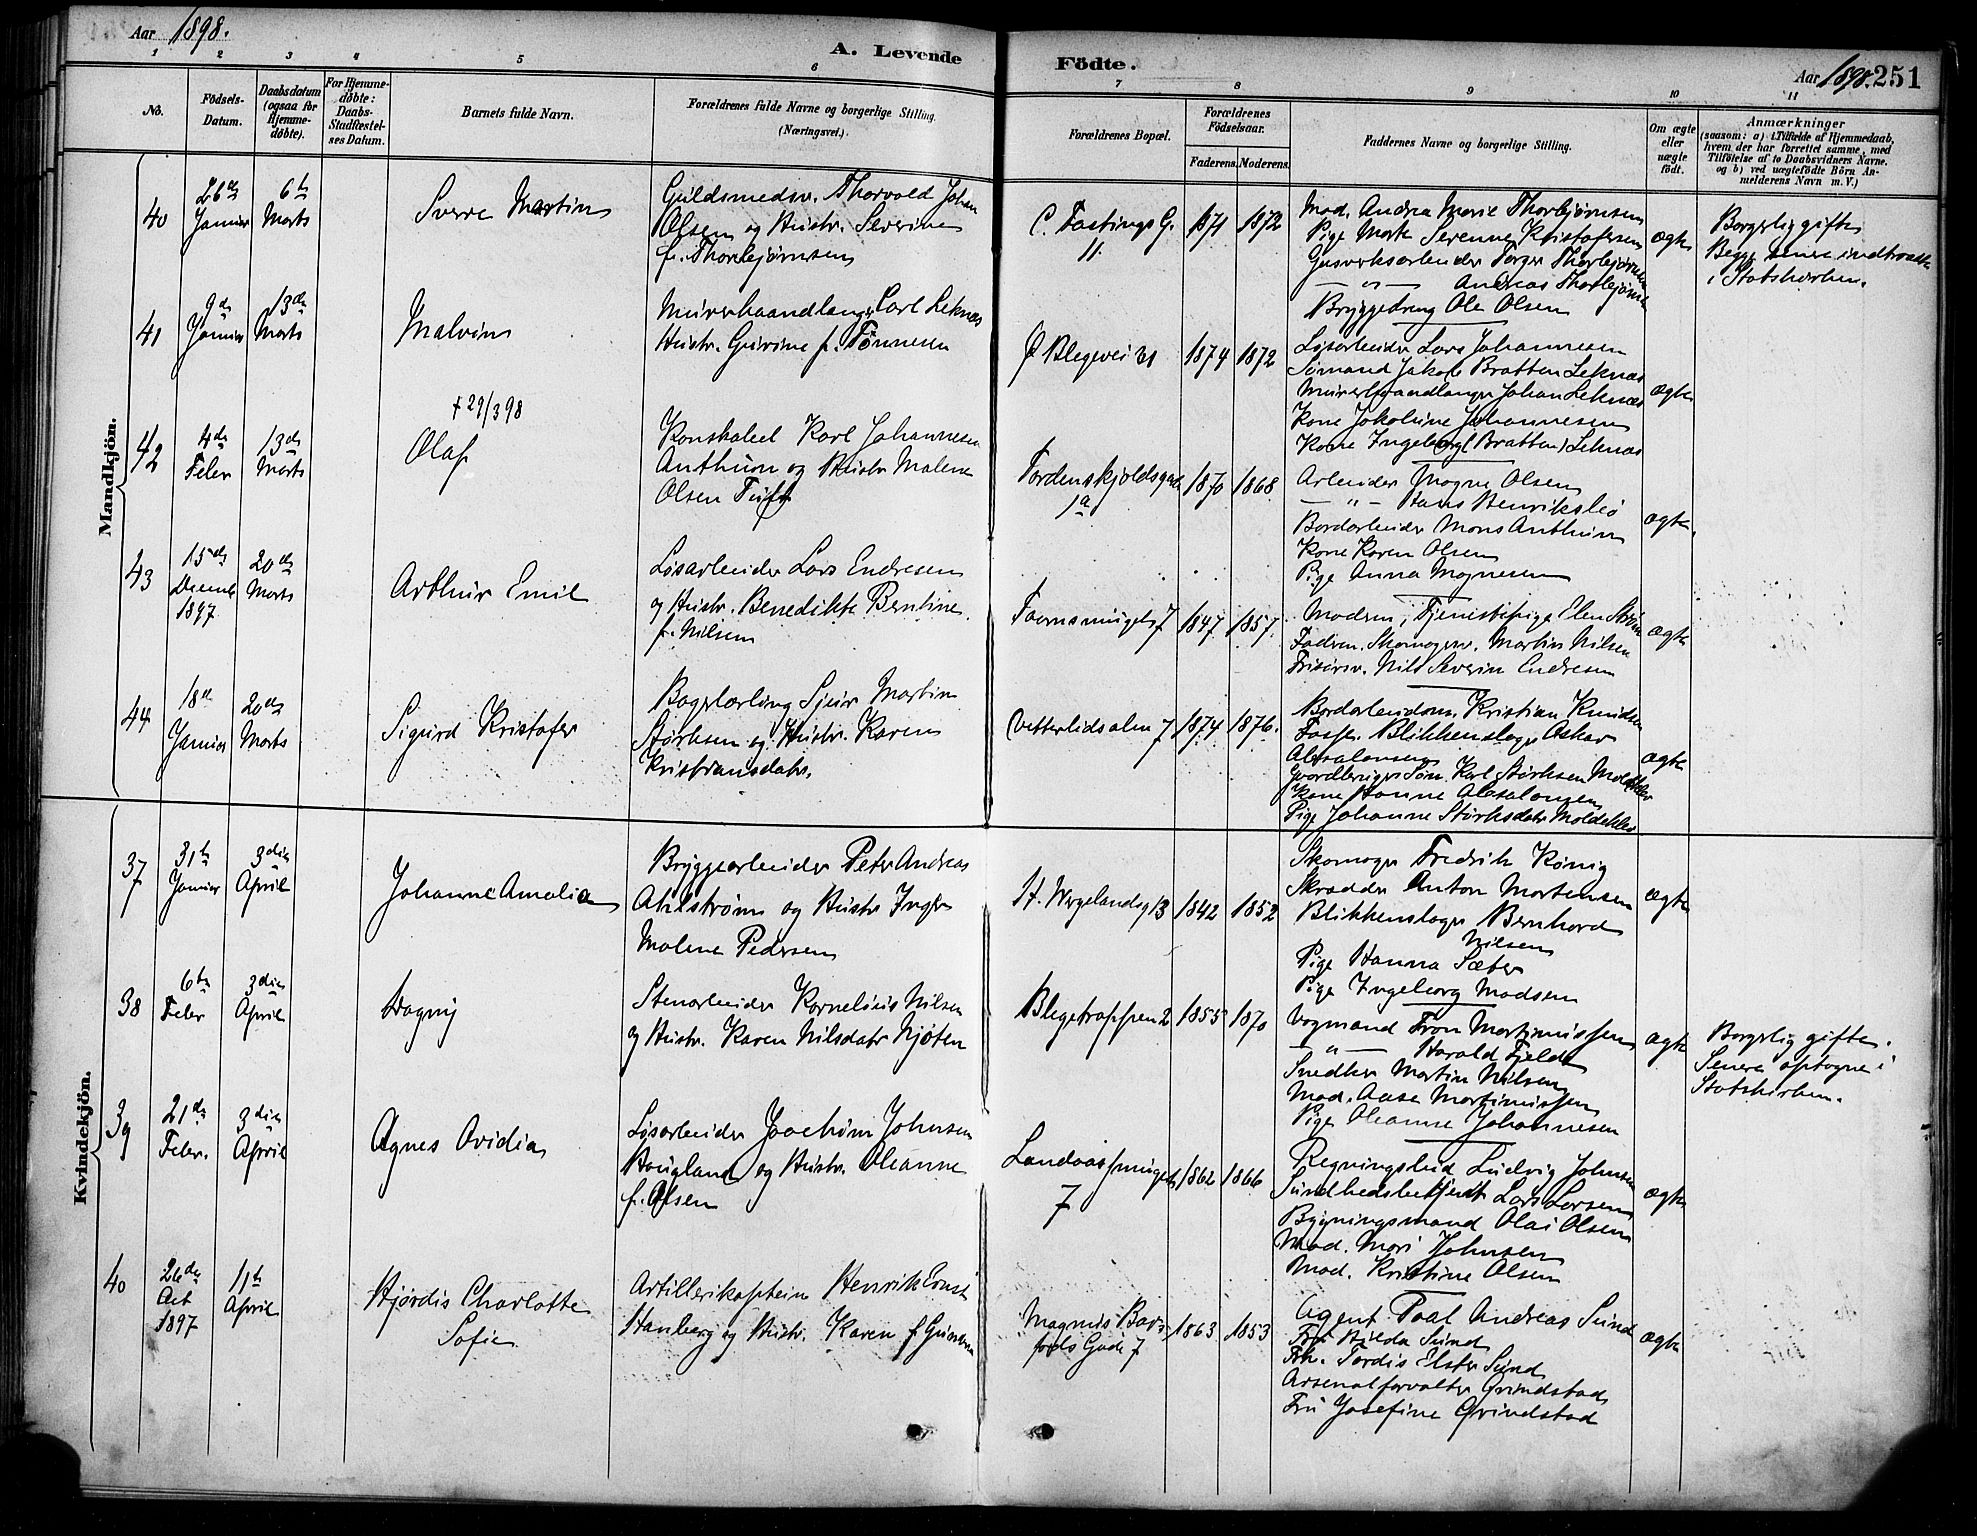 Aar 1898.
A. Levende
Födte.
Aar 1898. 251
1 2 3 4 5 6 7 8 9 10 11
No.
Födsels-
Datum.
Daabsdatum
(ogsaa for
Hjemme-
döbte).
For Hjemme-
döbte:
Daabs-
Stadfæstel-
ses Datum.
Barnets fulde Navn.
Forældrenes fulde Navne og borgerlige Stilling.
(Næringsvei.).
Forældrenes Bopæl.
Forældrenes
Födselsaar.
Faderens. Moderens.
Faddernes Navne og borgerlige Stilling.
Om ægte
eller
uægte
födt.
Anmærkninger
(saasom: a) i Tilfælde af Hjemmedaab,
hvem der har forrettet samme, med
Tilföielse af to Daabsvidners Navne.
og b) ved uægtefödte Börn An-
melderens Navn m. V.)
Mandkjön.
40
26de
Januar
6te
Marts
Sverre Martin
Guldsmedsv. Thorvald Johan
Olsen og Hustr. Severine
f. Thorbjørnsen
C. Fastings G.
11.
1871 1872
Mad. Andrea Marie Thorbjørnsen
Pige Marte Serenne Kristofersen
Gasverksarbeider Torger Thorbjørnsen
— " — Andreas Thorbjørnsen
Bryggedreng Ole Olsen
ægte
Borgerlig gifte
Begge senere indtraadte
i Statskirken.
41
9de
Januar
13de
Marts
Malvin
Murerhaandlanger Carl Leknæs
Hustr. Gurine f. Tönnesen
Ø Blegevei 21
1874 1872
Løsarbeider Lars Johannesen
Sømand Jakob Bratten Leknæs
Murerhaandlanger Johan Leknæs
Kone Jakobine Johannesen
Kone Ingeborg (Bratten) Leknæs
ægte
42
4de
Febr
13de
Marts
† 29/3 98
Olaf
Konstabel Karl Johannesen
Anthun og Hustr Malene
Olsen Tuft
Tordenskjoldsgade
1a
1870 1868
Arbeider Magne Olsen
— " — Hans Henriksbø
Bordarbeider Mons Anthun
Kone Karen Olsen
Pige Anna Magnesen
ægte.
43
15de
Decemb
1897
20de
Marts
Arthur Emil
Løsarbeider Lars Endresen
og Hustr. Benedikte Berntine
f. Nilsen
7
1847 1857.
Modern, Tjenestepige Elen Strøm
Fadren. Skomagersv. Martin Nilsen
Frisørsv. Nils Severin Endresen
ægte
44
18de
Januar
20de
Marts
Sigurd Kristofer
Bagerlærling Sjur Martin
Størksen og Hustr. Karen
Kristiansdatr.
Vetterlidsalm 7
1874 1876.
Kristian Knudsen
Blikkenslager Oskar
Absalonsen
Gaardbrugers Søn Karl Størksen Moldeklev
Kone Hanne Absalonsen
Pige Johanne Størksdatr Moldeklev
ægte
Kvindekjön.
37
31te
Januar
3die
April
Johanne Amalia
Bryggearbeider Peter Andreas
Ahlstrøm og Hustr Inger
Malene Pedersen
H. Wergelandsg 13
1842 1852
Skomager Fredrik König
Skrædder Anton Mortensen
Blikkenslager Bernhard
Nilsen
Pige Hanna Sæter
Pige Ingeborg Madsen
ægte
38
6te
Febr
3die
April
Dagny
Stenarbeider Kornelius Nilsen
og Hustr. Karen Nilsdatr Njøten
Blegetrappen 2
1855 1870
Vogmand Tron Martinussen
— " — Harald Fjelde
Snedker Martin Nilsen
Mad. Aase Martinussen
Pige Oleanne Johannesen
ægte
Borgerlig gifte.
Senere optagne i
Statskirken.
39
21de
Febr.
3die
April
Agnes Ovidia
Løsarbeider Joachim Johnsen
Haugland og Hustr. Oleanne
f. Olsen
Landaassmuget
7
1862 1866
Regningsbud Ludvig Johnsen
Sundhedsbetjent Lars Larsen
Bygningsmand Olai Olsen
Mad. Mari Johnsen
Mad. Kristine Olsen
ægte
40
26de
Oct
1897
11te
April
Hjørdis Charlotte
Sofie
Artillerikaptein Henrik Ernst
Hanberg og Hustr. Karen f
Magnus Bar-
fods Gade 7
1863 1853
Agent Paal Andreas Sund
Fru Hilda Sund
Frk. Tordis Elster Sund
Arsenalforvalter Grindstad
Fru Josefine Grindstad
ægte